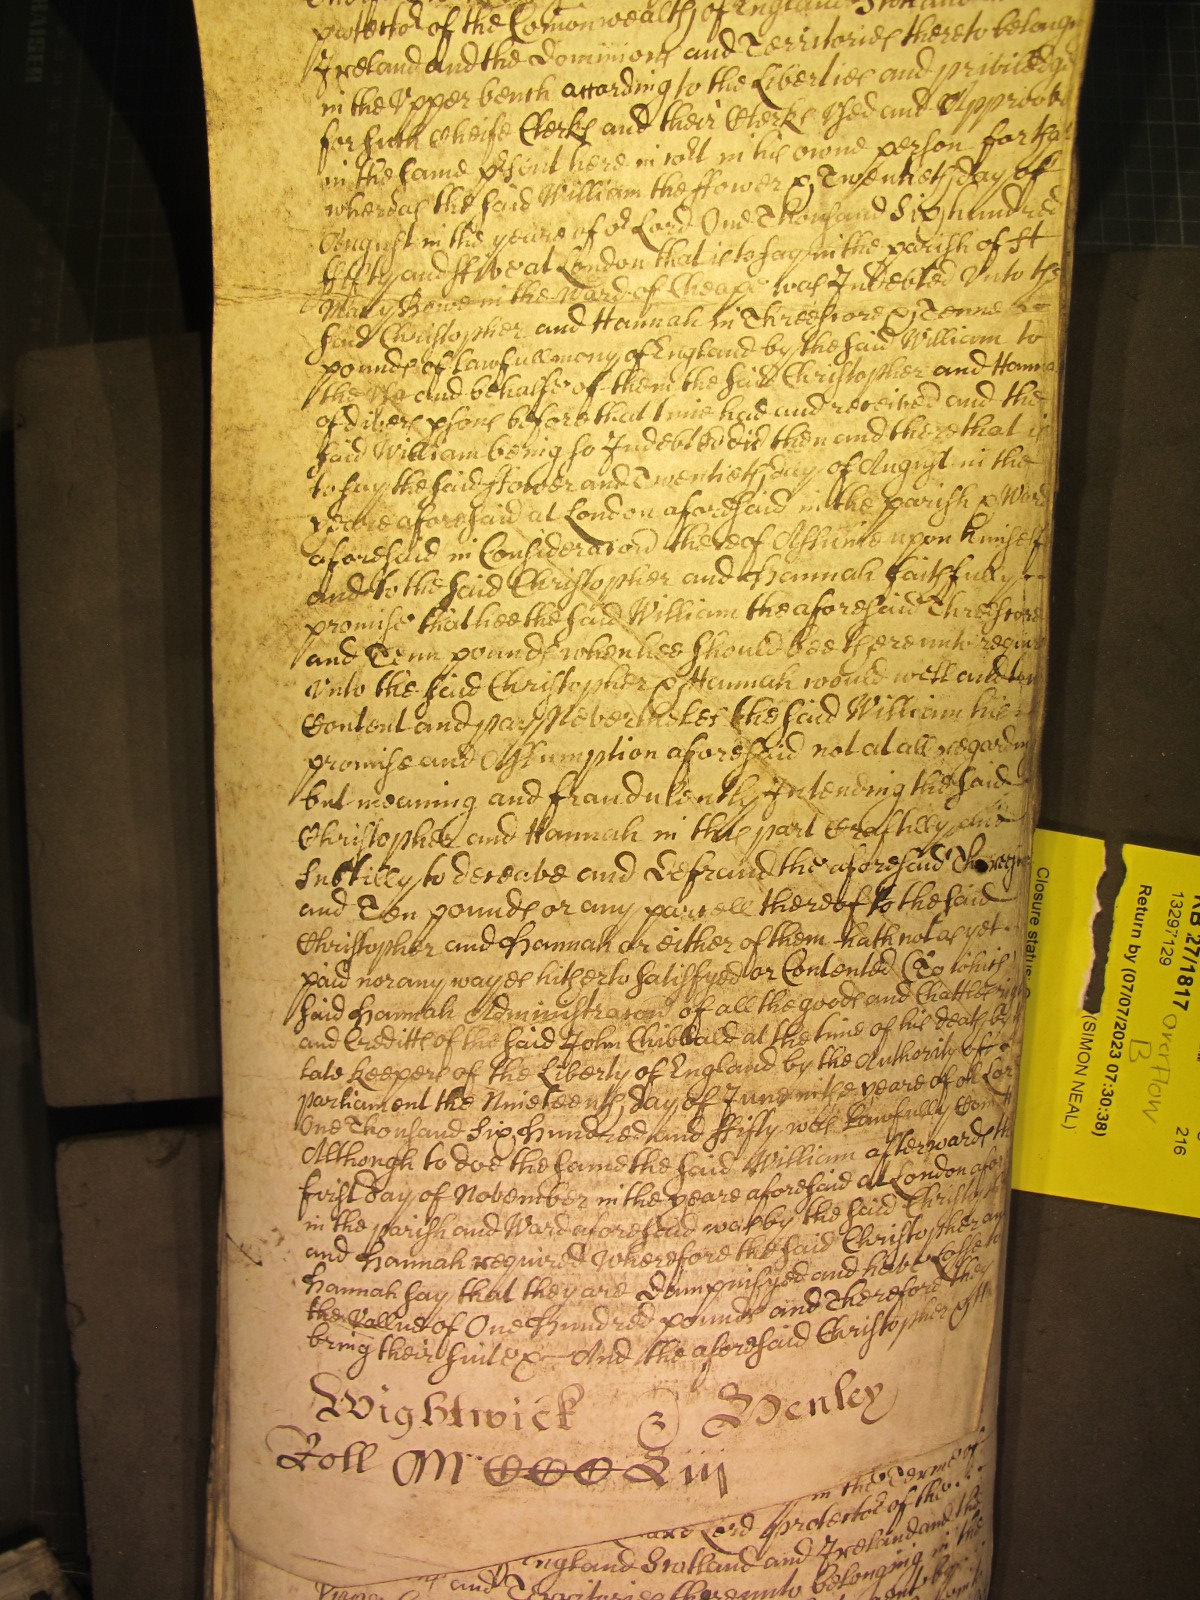 protector of the Comonwealth of England Scotland and
Ireland and the Dominions and Territories thereto belonging
in the Upper bench according to the Liberties and priviledges
for such Cheife Clerks and their Clerks Used and Approved
in the same psent here in cort in his owne person for that
whereas the said William the ffower & Twentieth day of
August in the yeare of or Lord One Thousand Six hundred
ffifty and ffive at London that is to say in the parish of St
Mary Bowe in the Ward of Cheape was Indebted Unto the
said Christopher and Hannah in Threescore & Tenne
pounds of lawfull mony of England by the said William to
the Use and behalfe of them the said Christopher and Hannah
of divers psons before that time had and received and the
said William being so Indebted did then and there that is
to say the said ffower and Twentieth day of August in the
yeare aforesaid at London aforesaid in the parish & Ward
aforesaid in Consideracon thereof Assume upon himself
and to the said Christopher and Hannah faithfully
promise that hee the said William the aforesaid Threscore
and Tenn pounds when hee should bee thereunto requir
Unto the said Christopher & Hannah would well and tru
Content and pay Neverthelesse the said William his
promise and Assumption aforesaid not at all regarding
but meaning and fraudulently Intending the said
Christopher and Hannah in this part Craftilly and
Subtilly to deceave and Defraud the aforesaid Threescore
and Ten pounds or any parcell thereof to the said
Christopher and Hannah or either of them hath not as yet
paid nor any wayes hitherto satisfyed or Contented (To which
said Hannah Administracon of all the goods and Chattles
and Creditts of the said John Chibbald at the time of his death by
late Keepers of the Liberty of England by the Authority of
parliament the Nineteenth day of June in the yeare of or Lord
One Thousand Six hundred and ffifty was Lawfully Comitt
Although to doe the same the said William afterwards the
first day of November in the yeare aforesaid at London afor
in the parish and Ward aforesaid was by the said Christopher
and Hannah required Wherefore the said Christopher and
Hannah say that they are Dampnifyed and have Losse to
the Vallue of One Hundred pounds and Therefore they
bring their suit &c And the aforesaid Christopher &
Wightwick Henley
Roll
in the Terme of
Lord protector of the
England Scotland and Ireland and the
and Territories thereunto belonging in the
Closure status
RB 27/1817
13297129
Overflow
B
216
Return by (07/07/2023 07:30:38)
(SIMON NEAL)